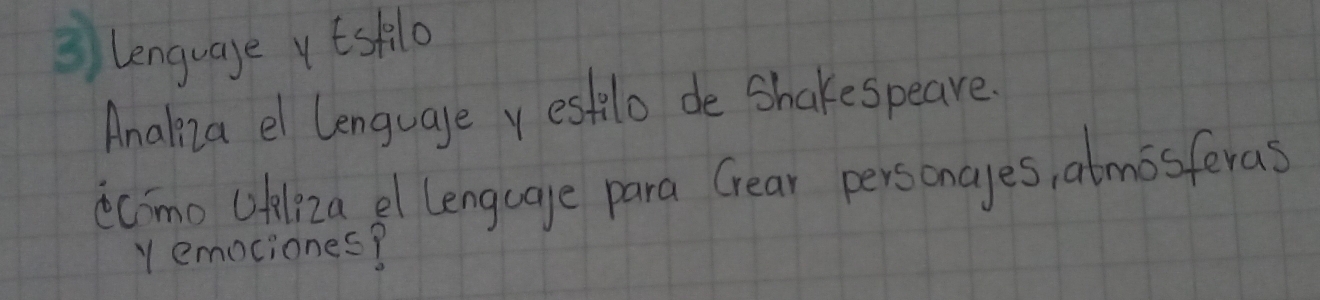 3) Lenguaje y Estilo
Analiza el lenguaje y estilo de Shakespeare.
¿cómo Utiliza el lenguaje para Crear personajes, atmósferas
y emociones?